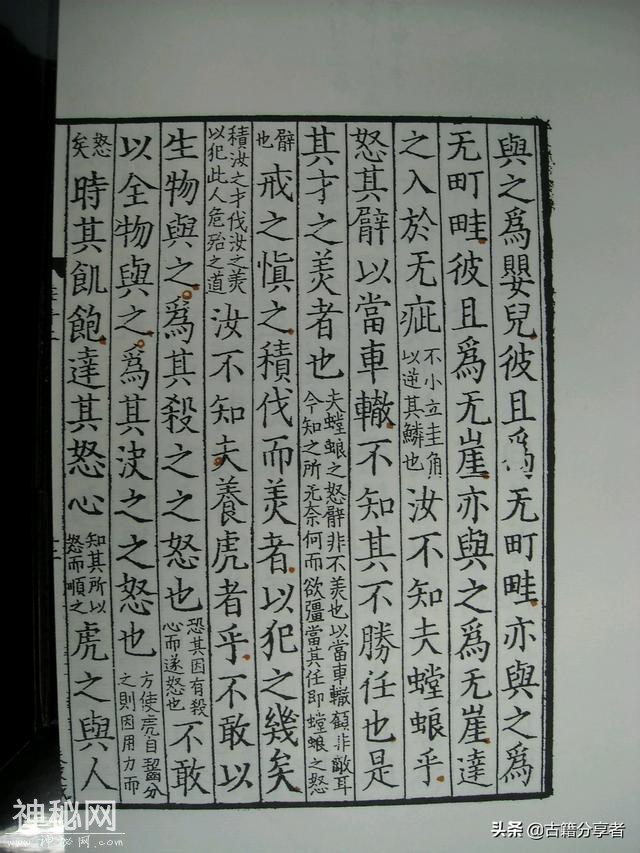 與之爲嬰兒彼且爲无町畦亦與之爲
无町畦彼且爲无崖亦與之爲无崖達
之入於无疵不小立圭角以逆其鱗也汝不知夫螳蜋乎
怒其臂以當車轍不知其不勝任也是
其才之美者也夫螳蜋之怒臂非不美也以當車轍顧非敵耳今知之所无奈何而欲彊當其任即螳蜋之怒
臂也戒之愼之積伐而美者以犯之幾矣
積汝之才伐汝之美以犯此人危殆之道汝不知夫養虎者乎不敢以
生物與之爲其殺之之怒也恐其因有殺心而遂怒也不敢
以全物與之爲其決之之怒也方使虎自齧分之則因用力而
怒矣時其飢飽達其怒心知其所以怒而順之虎之與人
神秘网
头条 @古籍分享者